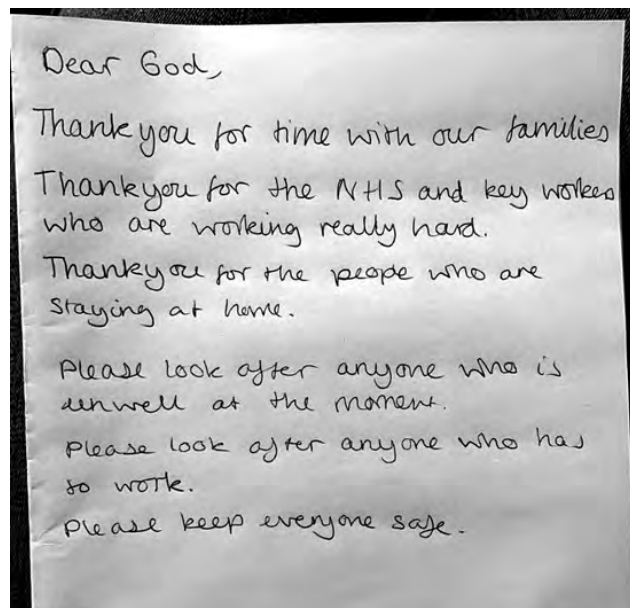 Dear God,
Thankyou for time with our families
Thankyou for the NHS and key workers
who are working really hard.
Thankyou for the peope who are
staying at home.
Please look after anyone who is
unwell at the moment.
Please look after anyone who has
to work.
Please keep everyone safe.